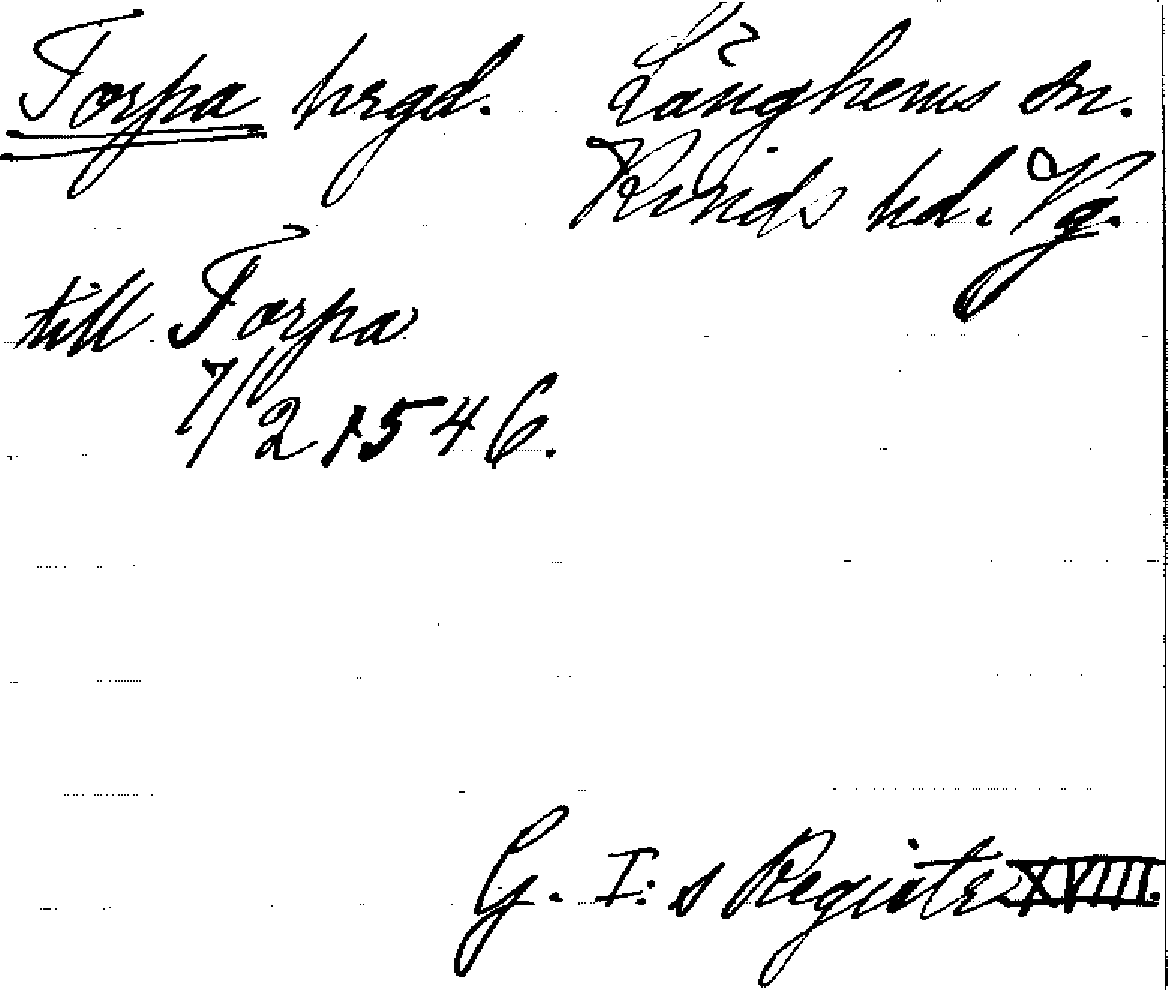 Torpa hrgd. Länghems sn.
Kinds hd. Vg.
till Torpa
7/2 1546.
G. I:s Registr XVIII.